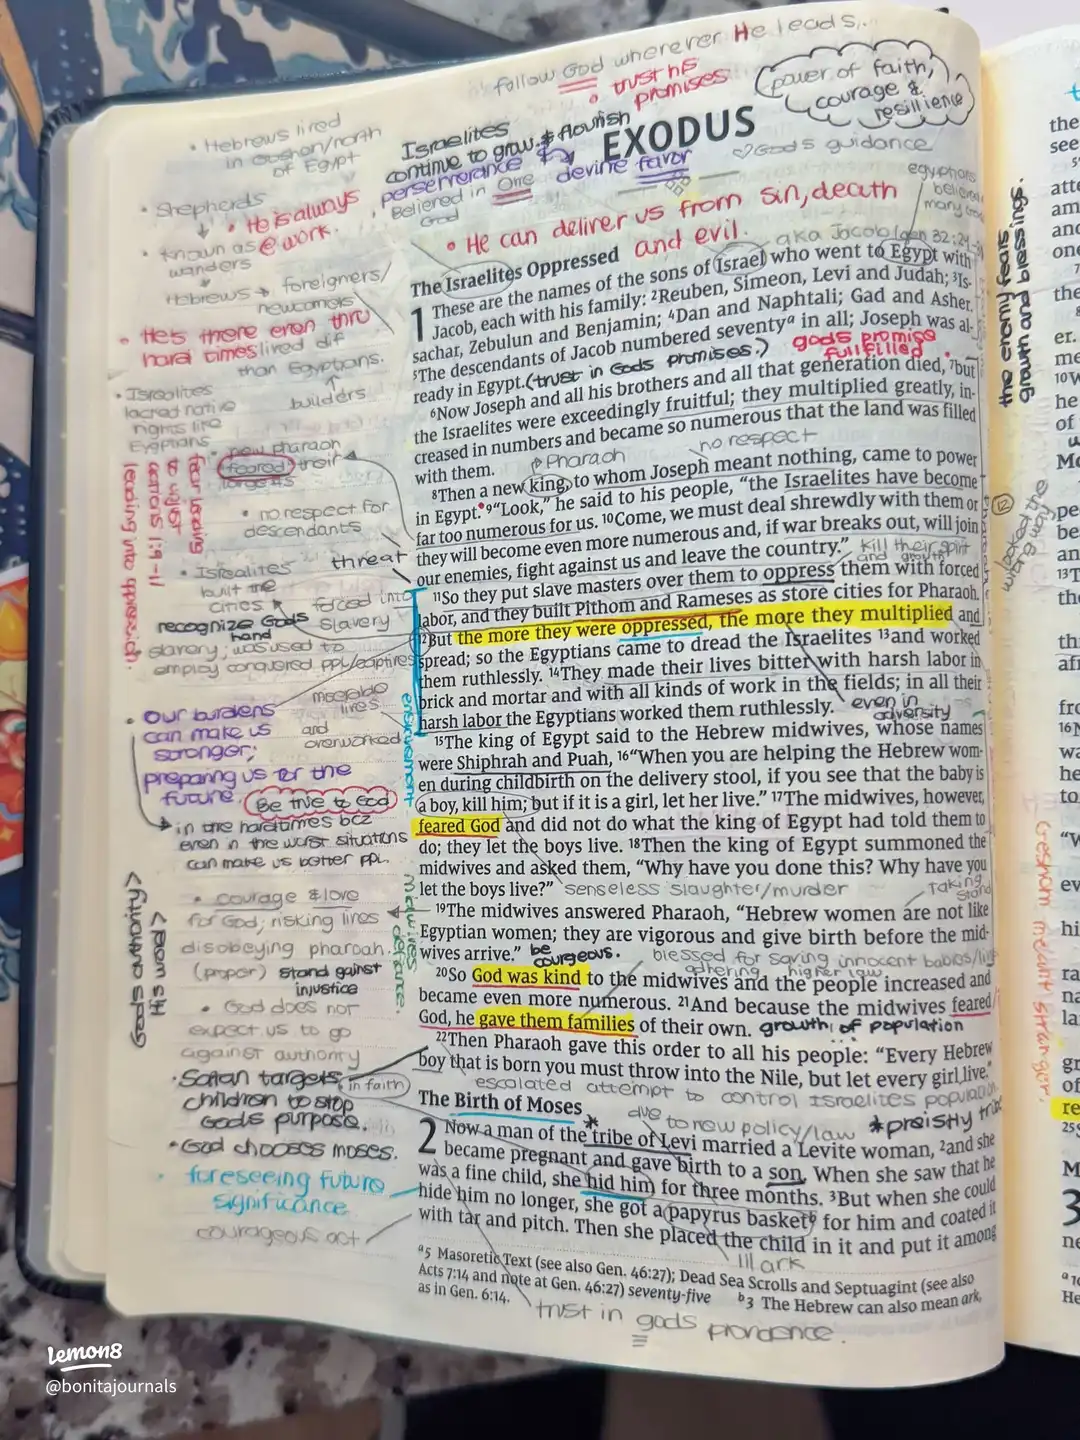 follow God wherever He leads..
• trust his
promises
power of faith,
courage &
resillience
Israelites
continue to grow & flourish
perserverance
devine favor
Believed in One
God
EXODUS
♡God's guidance
egyptians
believed
many
• He can deliver us from sin, death
and evil.
aka Jacob (gen 32:2
• Hebrews lived
in Goshen/north
of Egypt
• Shepherds
• He is always
@ work.
• known as
wanders
Hebrews → foreigners/
newcomers
• He's there even thru
hard times
lived dif
than Egyptians.
builders
• Israelites
lacked native
rights like
Egyptians
new pharaoh
feared their
fear leading
to unjust
actions 1:9-11
leading into oppression.
• no respect for
descendants
threat
• Israelites
built the
cities
forced into
slavery
recognize Gods
hand
slavery; was used to
employ conquored ppl/captives
miserable
lives
and
overworked
enslavement
• our burdens
can make us
stronger;
preparing us for the
future.
Be true to God
in the hard times bcz
even in the worst situations
can make us better ppl.
• courage & love
for God; risking lives
disobeying pharoah.
stand against
injustice
midwives defiance.
• God does not
expect us to go
against authority
• Satan targets
(in faith)
children to stop
Gods purpose.
• God chooses moses.
• foreseeing future
significance
courageous act
The Israelites Oppressed
1 These are the names of the sons of Israel who went to Egypt with
Jacob, each with his family: 2Reuben, Simeon, Levi and Judah; 3Is-
sachar, Zebulun and Benjamin; 4Dan and Naphtali; Gad and Asher.
5The descendants of Jacob numbered seventya in all; Joseph was al-
ready in Egypt. (trust in Gods promises.)
gods promise
fullfilled
6Now Joseph and all his brothers and all that generation died, 7but
the Israelites were exceedingly fruitful; they multiplied greatly, in-
creased in numbers and became so numerous that the land was filled
with them.
Pharaoh
no respect
8Then a new king, to whom Joseph meant nothing, came to power
in Egypt. 9“Look,” he said to his people, “the Israelites have become
far too numerous for us. 10Come, we must deal shrewdly with them or
they will become even more numerous and, if war breaks out, will join
our enemies, fight against us and leave the country.”
kill their spirit
and growth
11So they put slave masters over them to oppress them with forced
labor, and they built Pithom and Rameses as store cities for Pharaoh.
12But the more they were oppressed, the more they multiplied and
spread; so the Egyptians came to dread the Israelites 13and worked
them ruthlessly. 14They made their lives bitter with harsh labor in
brick and mortar and with all kinds of work in the fields; in all their
harsh labor the Egyptians worked them ruthlessly.
even in
adversity
15The king of Egypt said to the Hebrew midwives, whose names
were Shiphrah and Puah, 16“When you are helping the Hebrew wom-
en during childbirth on the delivery stool, if you see that the baby is
a boy, kill him; but if it is a girl, let her live.” 17The midwives, however,
feared God and did not do what the king of Egypt had told them to
do; they let the boys live. 18Then the king of Egypt summoned the
midwives and asked them, “Why have you done this? Why have you
let the boys live?” senseless slaughter/murder
Taking
stand
19The midwives answered Pharaoh, “Hebrew women are not like
Egyptian women; they are vigorous and give birth before the mid-
wives arrive.” be
courgeous.
blessed for saving innocent babies/
adhering higher law
20So God was kind to the midwives and the people increased and
became even more numerous. 21And because the midwives feared
God, he gave them families of their own. growth of population
22Then Pharaoh gave this order to all his people: “Every Hebrew
boy that is born you must throw into the Nile, but let every girl live.”
escalated attempt to control Israelites population
The Birth of Moses
due to new policy/law
*preistly tribe
2 Now a man of the tribe of Levi married a Levite woman, 2and she
became pregnant and gave birth to a son. When she saw that he
was a fine child, she hid him for three months. 3But when she could
hide him no longer, she got a papyrus basketb for him and coated it
with tar and pitch. Then she placed the child in it and put it among
ark
a5 Masoretic Text (see also Gen. 46:27); Dead Sea Scrolls and Septuagint (see also
Acts 7:14 and note at Gen. 46:27) seventy-five b3 The Hebrew can also mean ark,
as in Gen. 6:14.
trust in gods provdence.
the enemy fears
growth and blessings.
looked the
wrong way
Gershom meant stranger.
lemon8
@bonitajournals